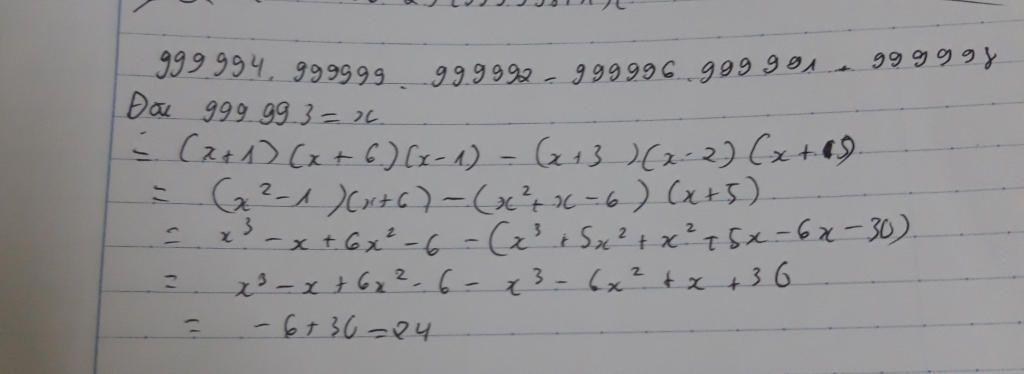 999 994. 999999. 999992 - 999996. 999 991. 999998
Đặt 999 993 = x
= (x+1)(x+6)(x-1) - (x+3)(x-2)(x+5)
= (x²-1)(x+6) - (x²+x-6)(x+5)
= x³ - x + 6x² - 6 - (x³ + 5x² + x² + 5x - 6x - 30)
= x³ - x + 6x² - 6 - x³ - 6x² + x + 30
= -6 + 30 = 24